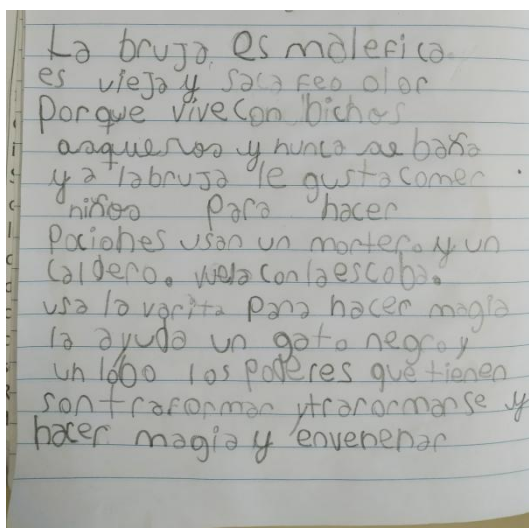 La bruja es malefica.
es vieja y saca feo olor
porque vivecon bichos
asquerosos y nunca se baña
y a labruja le gustacomer
niños para hacer
Pociones usan un mortero y un
caldero. vuela conlaescoba.
usa la varita para hacer magia
la ayuda un gato negro y
un lobo los poderes que tienen
son traformar ytraformarse y
hacer magia y envenenar